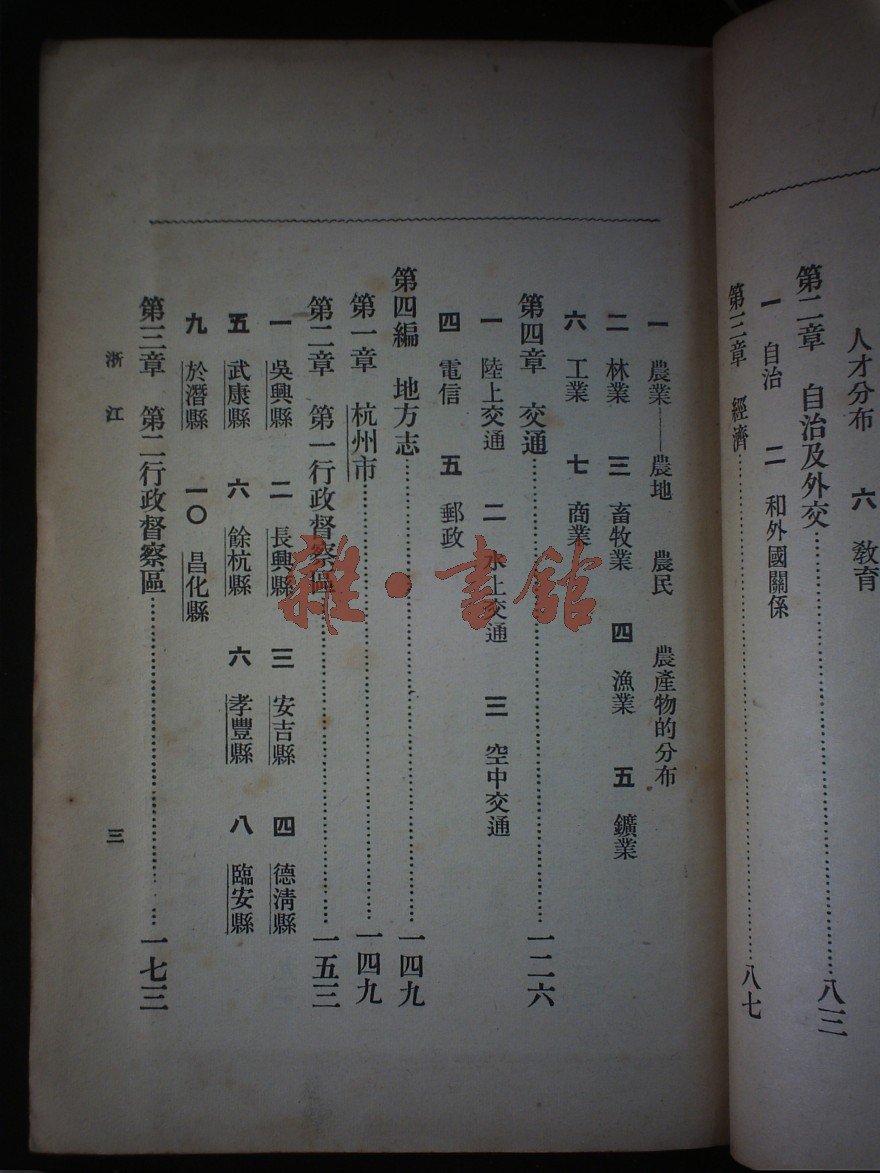 人才分布　六　教育
第二章　自治及外交……八三
一　自治　二　和外國關係
第三章　經濟……八七
一　農業——農地　農民　農產物的分布
二　林業　三　畜牧業　四　漁業　五　鑛業
六　工業　七　商業
第四章　交通……一二六
一　陸上交通　二　水上交通　三　空中交通
四　電信　五　郵政
第四編　地方志……一四九
第一章　杭州市……一四九
第二章　第一行政督察區……一五三
一　吳興縣　二　長興縣　三　安吉縣　四　德清縣
五　武康縣　六　餘杭縣　六　孝豐縣　八　臨安縣
九　於潛縣　一〇　昌化縣
第三章　第二行政督察區……一七三
浙江　三
雜·書館